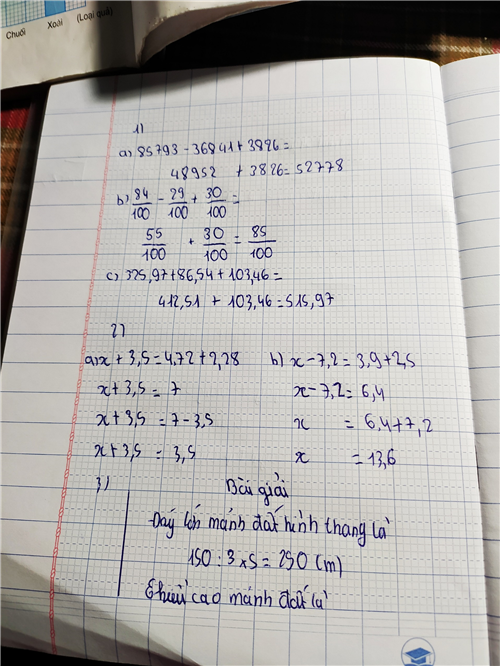 Chuối Xoài (Loại quả)
1)
a) 85793 - 36841 + 3826 =
48952 + 3826 = 52778
b) 84/100 - 29/100 + 30/100 =
55/100 + 30/100 = 85/100
c) 325,97 + 86,54 + 103,46 =
412,51 + 103,46 = 515,97
2)
a) x + 3,5 = 4,72 + 2,28 b) x - 7,2 = 3,9 + 2,5
x + 3,5 = 7 x - 7,2 = 6,4
x + 3,5 = 7 - 3,5 x = 6,4 + 7,2
x + 3,5 = 3,5 x = 13,6
3) Bài giải
Đáy lớn mảnh đất hình thang là
150 : 3 x 5 = 250 (m)
Chiều cao mảnh đất là